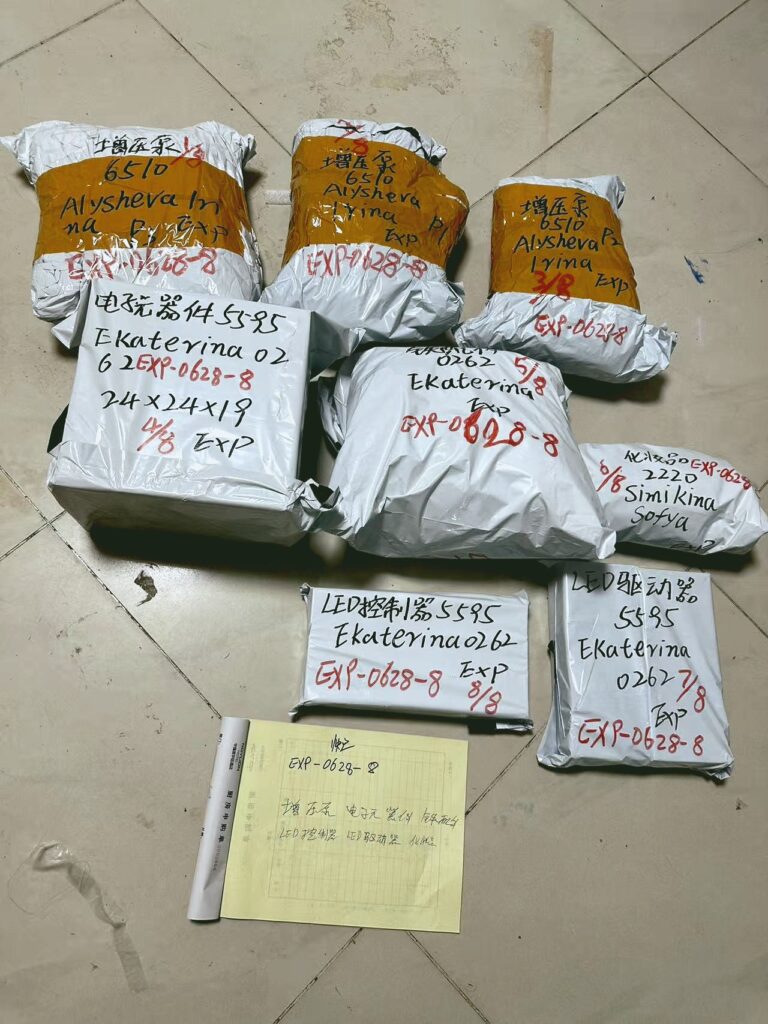 增压泵 1/8
6510
Alysheva Iri
na P3 EXP
EXP-0628-8
2/8
增压泵
6510
Alysheva
Irina P1
EXP
EXP-0628-8
增压泵
6510 P2
Alysheva
Irina
3/8 EXP
EXP-0628-8
电子元器件5595
Ekaterina 02
62 EXP-0628-8
24x24x19
4/8 EXP
0262 5/8
Ekaterina
EXP
EXP-0628-8
化妆品 EXP-0628-8
6/8 2220
Simikina
Sofya
EXP
LED控制器5595
Ekaterina0262
EXP-0628-8 EXP
8/8
LED驱动器
5595
Ekaterina
0262 7/8
EXP
EXP-0628-8
EXP-0628-8
增压泵 电子元器件
LED控制器 LED驱动器